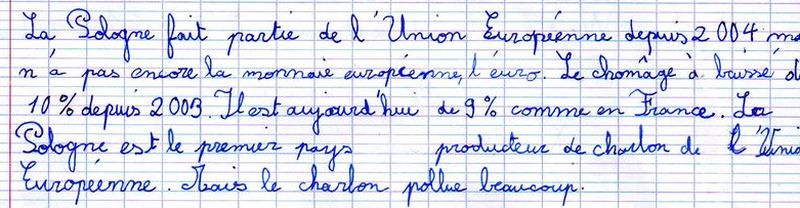 La Pologne fait partie de l'Union Européenne depuis 2004 ma
n'a pas encore la monnaie européenne, l'euro. Le chômage à baissé d
10% depuis 2003. Il est aujourd'hui de 9% comme en France. La
Pologne est le premier pays producteur de charbon de l'Unio
Européenne. Mais le charbon pollue beaucoup.